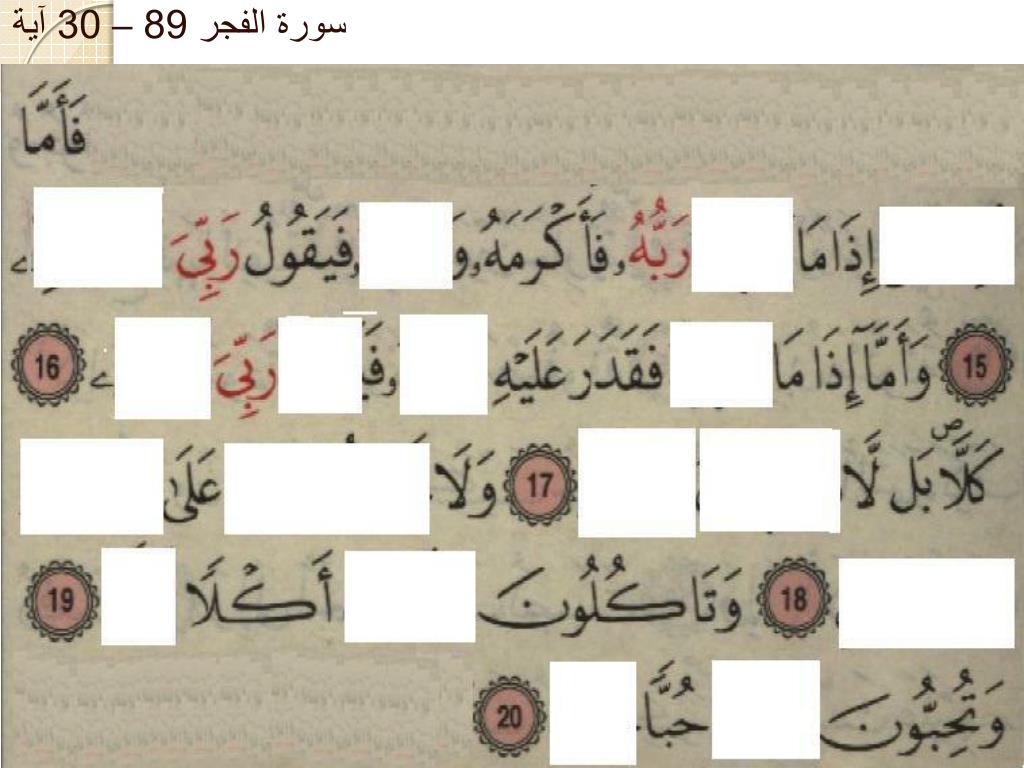 سورة الفجر 89 – 30 آية
فَأَمَّا
إِذَا مَا رَبُّهُ فَأَكْرَمَهُ وَ فَيَقُولُ رَبِّيَ
15 وَأَمَّآ إِذَا مَا فَقَدَرَ عَلَيْهِ رَبِّيَ 16
كَلَّا بَل لَّا 17 وَلَا عَلَىٰ
18 وَتَأْكُلُونَ أَكْلًا 19
وَتُحِبُّونَ حُبًّا 20